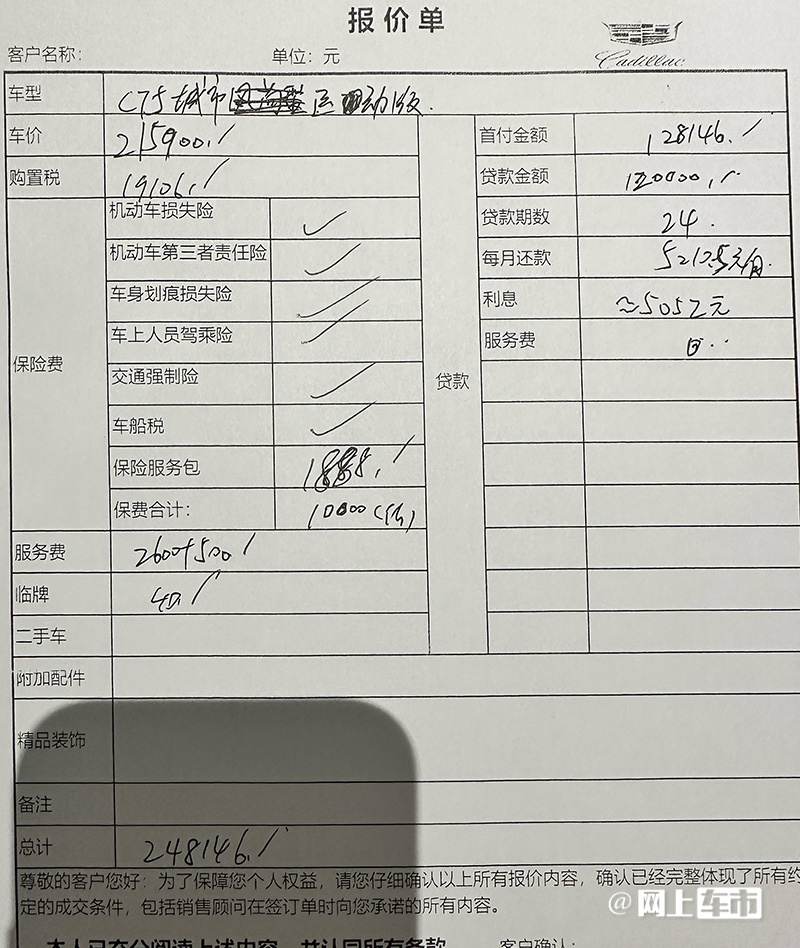 报价单
Cadillac
客户名称： 单位：元
车型 CT5 城市 运动版.
车价 215900./ 首付金额 128146./
购置税 19106./ 贷款金额 120000./
机动车损失险 ✓ 贷款期数 24.
机动车第三者责任险 ✓ 每月还款 5210.5元/月.
车身划痕损失险 ✓ 利息 ≈5052元
车上人员驾乘险 ✓ 服务费
保险费 贷款
交通强制险 ✓
车船税 ✓
保险服务包 1888./
保费合计： 10000(估)
服务费 2600+500/
临牌 40./
二手车
附加配件
精品装饰
备注
总计 248146./
尊敬的客户您好：为了保障您个人权益，请您仔细确认以上所有报价内容，确认已经完整体现了所有约
定的成交条件，包括销售顾问在签订单时向您承诺的所有内容。
本人已充分阅读上述内容，并认同所有条款 客户确认：
@网上车市